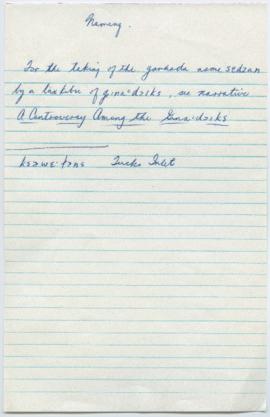 Naming.
For the taking of the ganhada name sedzan
by a laxkibu of gina·dɔiks, see narrative
A Controversy Among the Gina·dɔiks
Tucks Inlet